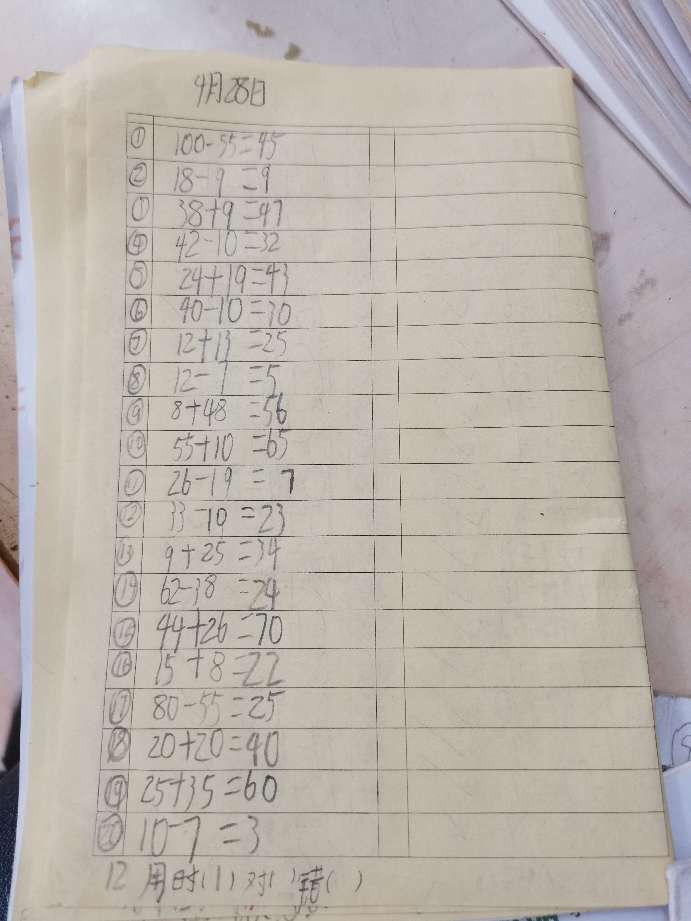 4月28日
① 100-55=45
② 18-9=9
① 38+9=47
④ 42-10=32
⑤ 24+19=43
⑥ 40-10=30
⑦ 12+13=25
⑧ 12-7=5
⑨ 8+48=56
⑩ 55+10=65
⑪ 26-19=7
⑫ 33-10=23
⑬ 9+25=34
⑭ 62-38=24
⑮ 44+26=70
⑯ 15+8=22
⑰ 80-55=25
⑱ 20+20=40
⑲ 25+35=60
⑳ 10-7=3
12 用时(1)对( )错( )